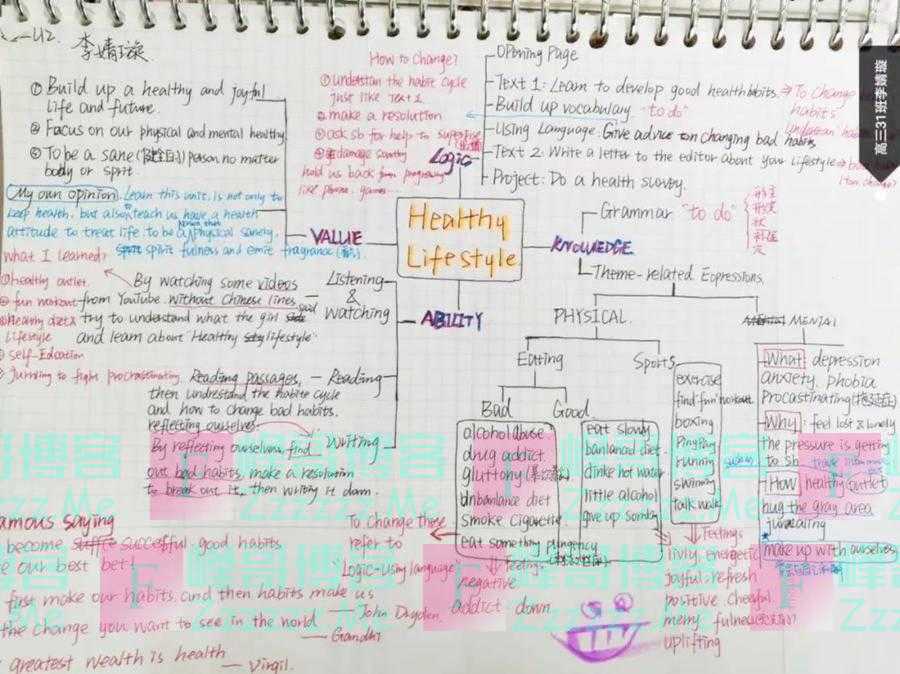 U2. 李婧璇
高三31班李婧璇
① Build up a healthy and joyful
life and future.
② Focus on our physical and mental healthy
③ To be a sane person no matter
body or spirit.
My own opinion. Learn this unit, is not only to
keep health, but also teach us have a health
attitude to treat life. to be physical sanely.
spirit fulness and emit fragrance
VALUE
How to Change?
① understan the habie cycle
just like Text 1
② make a resolution
③ ask sb for help to
hold us back from
like phone, games
Logic
Opening Page
Text 1: Learn to develop good health habits. → To change
habits
Build up vocabulary "to do"
Using Language: Give advice on changing bad habits
Text 2: Write a letter to the editor about your lifestyle
Project: Do a health survey.
Healthy
Lifestyle
KNOWLEDGE
Grammar "to do"
Theme-related Expressions.
ABILITY
what I learned?
① healthy outlet
② fun workout
③ healthy diet &
lifestyle
④ self-Edcation
⑤ Jumving to fight procrastinating
Listening
&
Watching
By watching some videos
from YouTube. without Chinese lines
try to understand what the girl said
and learn about "Healthy lifestyle"
Reading passages, — Reading
then undrestand the habite cycle
and how to change bad habits.
reflecting ourselves.
Writing
By reflecting ourselves, find
out bad habits, make a resolution
to break out it, then writing it down.
PHYSICAL
Eating
Sports
Bad
Good
alcohol abuse
drug addict
gluttony
unbanlance diet
smoke cigarette
eat something pungency
Feeling:
negative
addict down
eat slowly
banlanced diet
dinke hot water
little alcohol
give up somking
exercise
find fun workout
boxing
PingPing
running
swiming
talk walk
Feeling:
livly, energetic
joyful, refresh
positive. cheeful
merry, fulness
uplifting
MENTAL
What: depression
anxiety. phobia
Procastinating
Why: feel lost & lonely
the pressure is getting
to sb
How healthy outlet
hug the gray area
make up with ourselves
To change these
refer to
Logic-using language
amous saying
become succesful good habits
e our best bet!
first make our habits, and then habits make us
— John Dryden.
the change you want to see in the world
— Gandhi
greatest wealth is health
— Virgil.
哥博客
峰哥博客
Zzzzz.Me
F